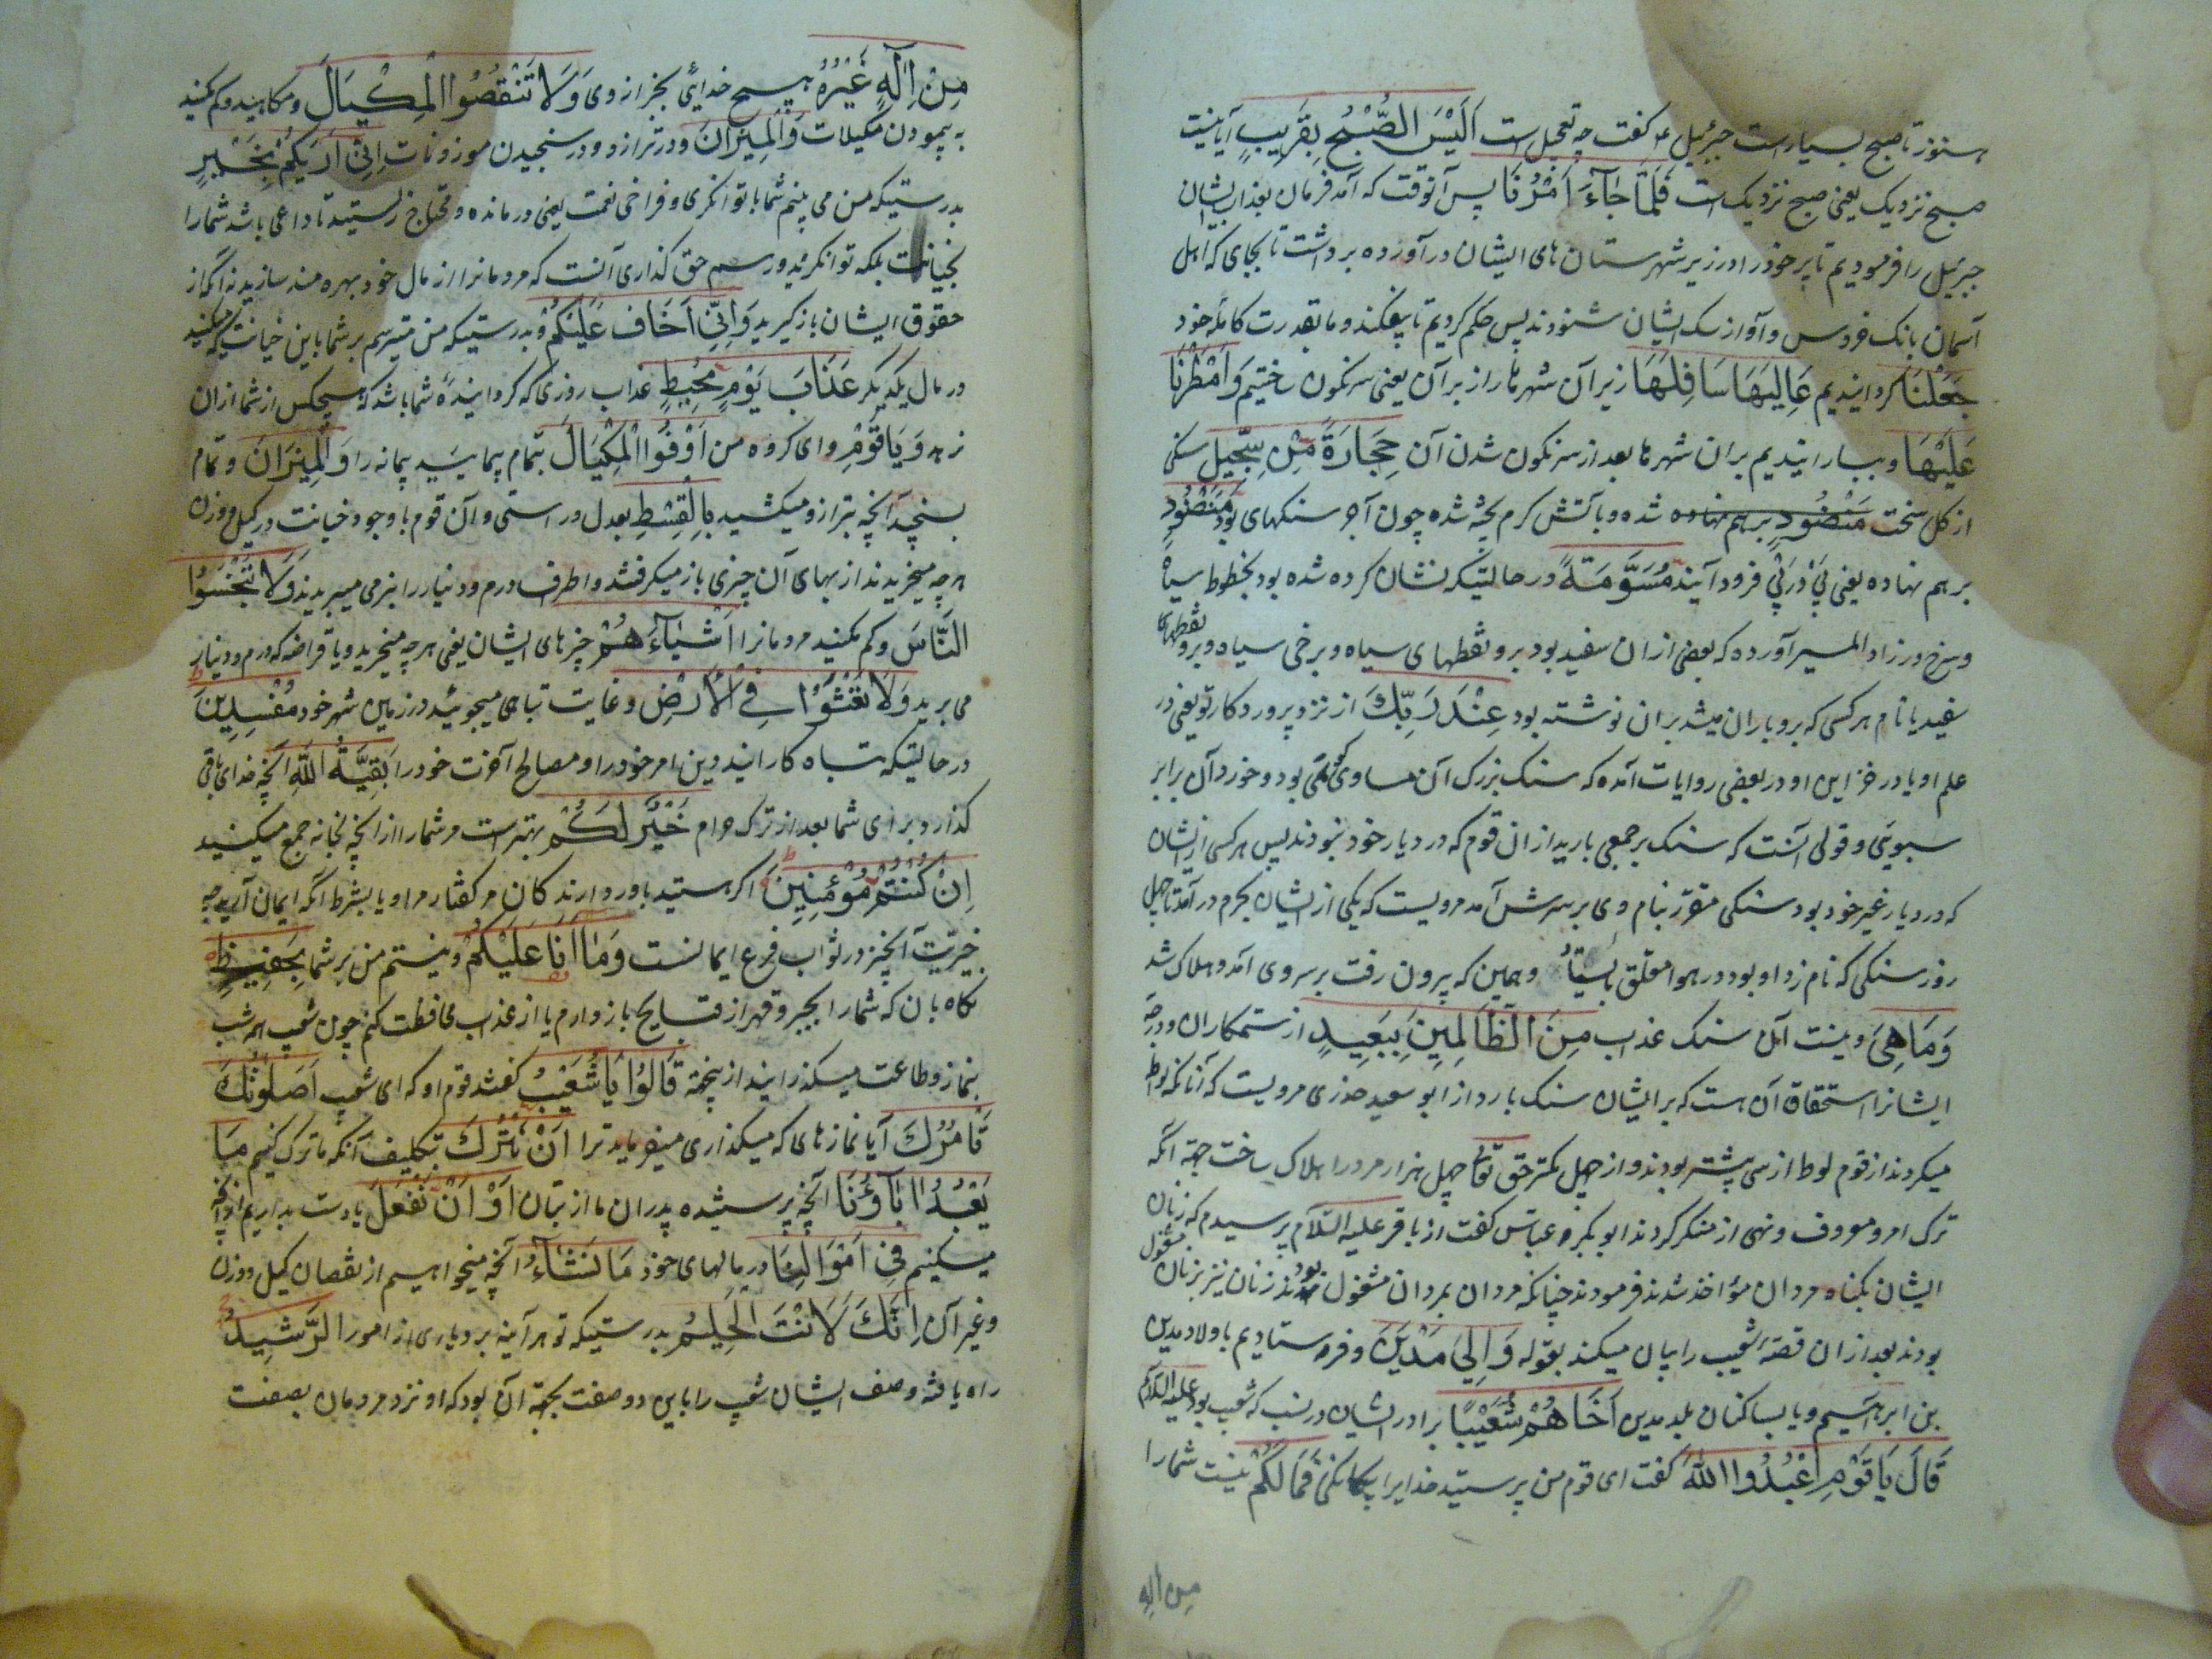 هنوز تا صبح بسیار است جبرئیل ع گفت چه تعجیل است اَلَیْسَ الصُّبْحُ بِقَرِیبٍ آیا نیست
صبح نزدیک یعنی صبح نزدیک است فَلَمَّا جَاءَ اَمْرُنَا پس آنوقت که آمد فرمان بعذاب ایشان
جبرئیل را فرمودیم تا پر خود را در زیر شهرستان های ایشان در آورده برداشت تا بجای که اهل
آسمان بانک خروس و آواز سک ایشان شنودند پس حکم کردیم تا بیفکند و ما بقدرت کامله خود
جَعَلْنَا گردانیدیم عَالِیَهَا سَافِلَهَا زبر آن شهرها را زیر آن یعنی سرنکون ساختیم وَاَمْطَرْنَا
عَلَیْهَا و ببارانیدیم بران شهرها بعد از سرنکون شدن آن حِجَارَةً مِنْ سِجِّیلٍ سنکی
از کل سخت مَنْضُودٍ برهم نهاده شده و بآتش کرم پخته شده چون آجر سنکهای بود مَنْضُودٍ
برهم نهاده یعنی پی در پی فرود آینده مُسَوَّمَةً در حالتیکه نشان کرده شده بود بخطوط سیاه
و سرخ در زاد المسیر آورده که بعضی ازان سفید بود برو نقطهای سیاه و برخی سیاه و برو نقطهای
سفید یا نام هر کسی که برو باران میشد بران نوشته بود عِنْدَ رَبِّكَ از نزد پروردکار تو یعنی در
علم او یا در خزاین او در بعضی روایات آمده که سنک بزرک آن مساوی خمی بود و خورد آن برابر
سبوئی و قولی آنست که سنک بر جمعی بارید ازان قوم که در دیار خود نبودند پس هر کسی از ایشان
که در دیار غیر خود بود سنکی مقرر بنام وی بر سرش آمد مرویست که یکی از ایشان بحرم در آمد تا چهل
روز سنکی که نام زد او بود در هوا معلق بایستاد و همین که بیرون رفت بر سر وی آمد و هلاک شد
وَمَا هِیَ و نیست آن سنک عذاب مِنَ الظَّالِمِینَ بِبَعِیدٍ از ستمکاران و درجه
ایشانرا استحقاق آن هست که بر ایشان سنک بارد از ابو سعید خدری مرویست که آنانکه لواط
میکردند از قوم لوط از سی بیشتر بودند و از چهل کمتر حق تعالی چهل هزار مرد را هلاک ساخت جهة آنکه
ترک امر معروف و نهی از منکر کردند ابو بکر و عیاش گفت از باقر علیه السلام پرسیدم که زنان
ایشان بکناه مردان مؤاخذ شدند فرمودند چنانکه مردان بمردان مشغول بودند زنان نیز بزنان مشغول
بودند بعد ازان قصه شعیب را بیان میکند بقوله وَاِلیٰ مَدْیَنَ و فرستادیم باولاد مدین
بن ابراهیم و یا بساکنان بلد مدین اَخَاهُمْ شُعَیْبًا برادر ایشان در نسب که شعیب بود علیه السلام
قَالَ یَا قَوْمِ اعْبُدُوا اللهَ گفت ای قوم من پرستید خدایرا بیکانکی مَالَكُمْ نیست شما را
من اله
مِنْ اِلٰهٍ غَیْرُهُ هیچ خدائی بجز از وی وَلَا تَنْقُصُوا الْمِكْیَالَ و مکاهید و کم مکنید
به پیمودن مکیلات وَالْمِیزَانَ و در ترازو و در سنجیدن موزونات اِنِّی اَرٰیكُمْ بِخَیْرٍ
بدرستیکه من می بینم شما با توانکری و فراخی نعمت یعنی درمانده و محتاج نیستید تا داعی باشد شما را
بخیانت بلکه توانکرید و رسم حق گذاری آنست که مردمانرا از مال خود بهره مند سازید نه آنکه از
حقوق ایشان باز گیرید وَاِنِّی اَخَافُ عَلَیْكُمْ و بدرستیکه من میترسم بر شما باین خیانت که میکنید
در مال یکدیکر عَذَابَ یَوْمٍ مُحِیطٍ عذاب روزی که گرد آینده شما باشد که هیچکس از شما ازان
نرهد وَیَا قَوْمِ و ای کروه من اَوْفُوا الْمِكْیَالَ بتمام پیمائید پیمانه را وَالْمِیزَانَ و تمام
بسنجید آنچه بترازو میکشید بِالْقِسْطِ بعدل و راستی و آن قوم با وجود خیانت در کیل و وزن
هر چه میخریدند از بهای آن چیزی باز میکرفتند و اطراف درم و دینار را نیز می بریدند وَلَا تَبْخَسُوا
النَّاسَ و کم مکنید مردمانرا اَشْیَاءَهُمْ چیزهای ایشان یعنی هر چه میخرید و یا قراضه که درم و دینار
می برید وَلَا تَعْثَوْا فِی الْاَرْضِ و غایت تباهی مجوئید در زمین شهر خود مُفْسِدِینَ
در حالتیکه تباه کارانید دین امر خود را و مصالح آخرت خود را بَقِیَّةُ اللهِ آنچه خدای باقی
گذارد برای شما بعد از ترک حرام خَیْرٌ لَكُمْ بهتر است مر شما را از آنچه بخیانه جمع میکنید
اِنْ كُنْتُمْ مُؤْمِنِینَ اکر هستید باور دارندکان مر کفتار مرا و یا بشرط آنکه ایمان آرید چه
خیریّت آنچیز در ثواب فرع ایمانست وَمَا اَنَا عَلَیْكُمْ و نیستم من بر شما بِحَفِیظٍ
نکاه بان که شما را بجبر و قهر از قبایح باز دارم یا از عذاب محافظت کنم چون شعیب همه شب
بنماز و طاعت میکذرانید ازینجهة قَالُوا یَا شُعَیْبُ کفتند قوم او که ای شعیب اَصَلٰوتُكَ
تَاْمُرُكَ آیا نمازهای که میکذاری میفرماید ترا اَنْ نَتْرُكَ بتکلیف آنکه ما ترک کنیم مَا
یَعْبُدُ اٰبَاؤُنَا آنچه پرستیده پدران ما از بتان اَوْ اَنْ نَفْعَلَ یا دست بداریم از آنچه
میکنیم فِی اَمْوَالِنَا در مالهای خود مَا نَشَاءُ آنچه میخواهیم از نقصان کیل و وزن
و غیر آن اِنَّكَ لَاَنْتَ الْحَلِیمُ بدرستیکه تو هر آینه بردباری از امور الرَّشِیدُ
راه یافته وصف ایشان شعیب را باین دو صفت بجهة آن بود که او نزد مردمان بصفت